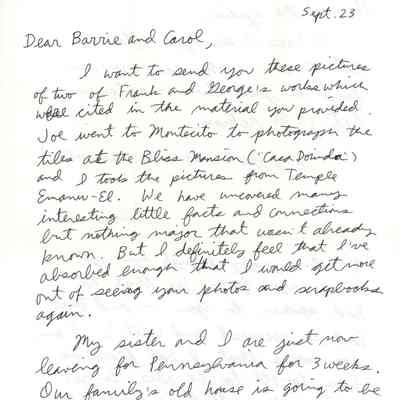 Sept. 23
Dear Barrie and Carol,
I want to send you these pictures
of two of Frank and George's works which
were cited in the material you provided.
Joe went to Montecito to photograph the
tiles at the Bliss Mansion ("Casa Dorinda")
and I took the pictures from Temple
Emanu-El. We have uncovered many
interesting little facts and connections
but nothing major that wasn't already
known. But I definitely feel that I've
absorbed enough that I would get more
out of seeing your photos and scrapbooks
again.
My sister and I are just now
leaving for Pennsylvania for 3 weeks.
Our family's old house is going to be